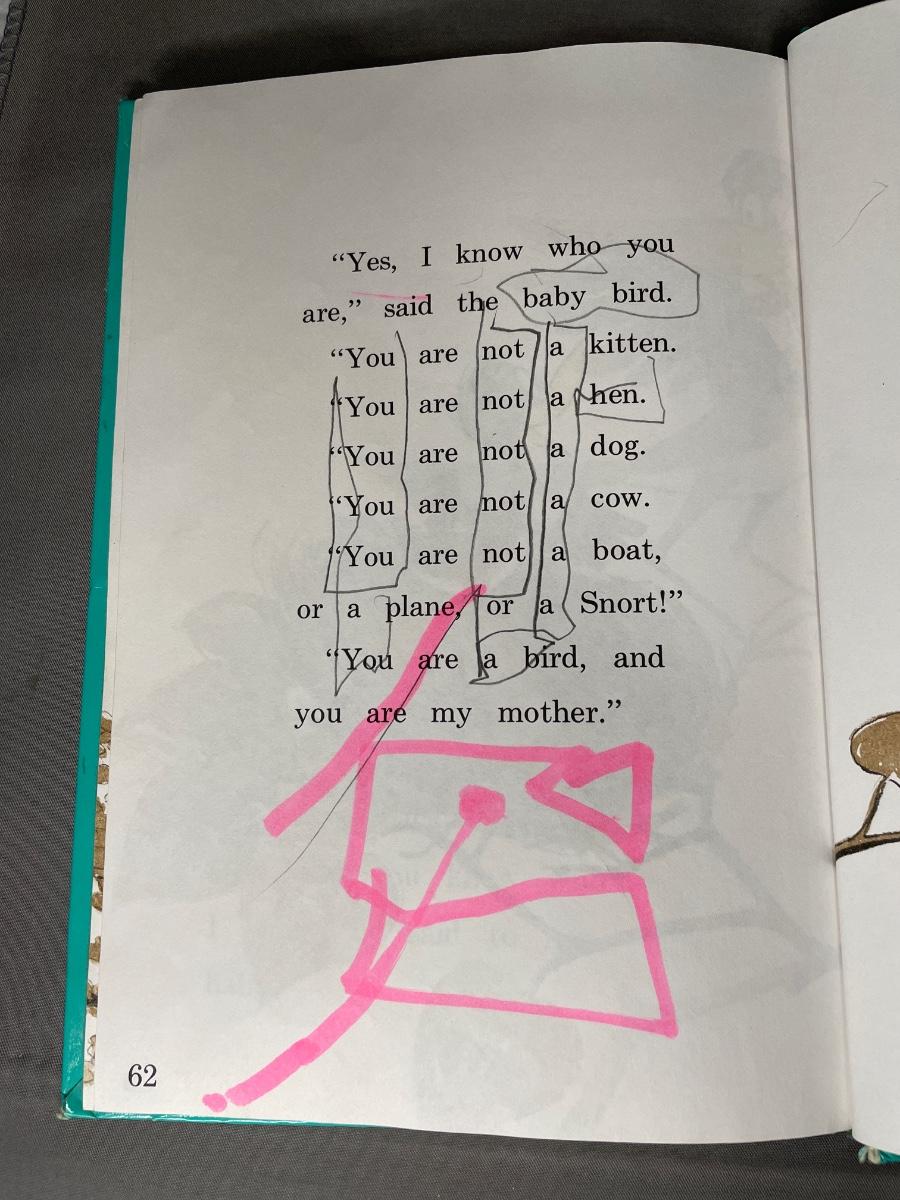 “Yes, I know who you
are,” said the baby bird.
“You are not a kitten.
“You are not a hen.
“You are not a dog.
“You are not a cow.
“You are not a boat,
or a plane, or a Snort!”
“You are a bird, and
you are my mother.”
62